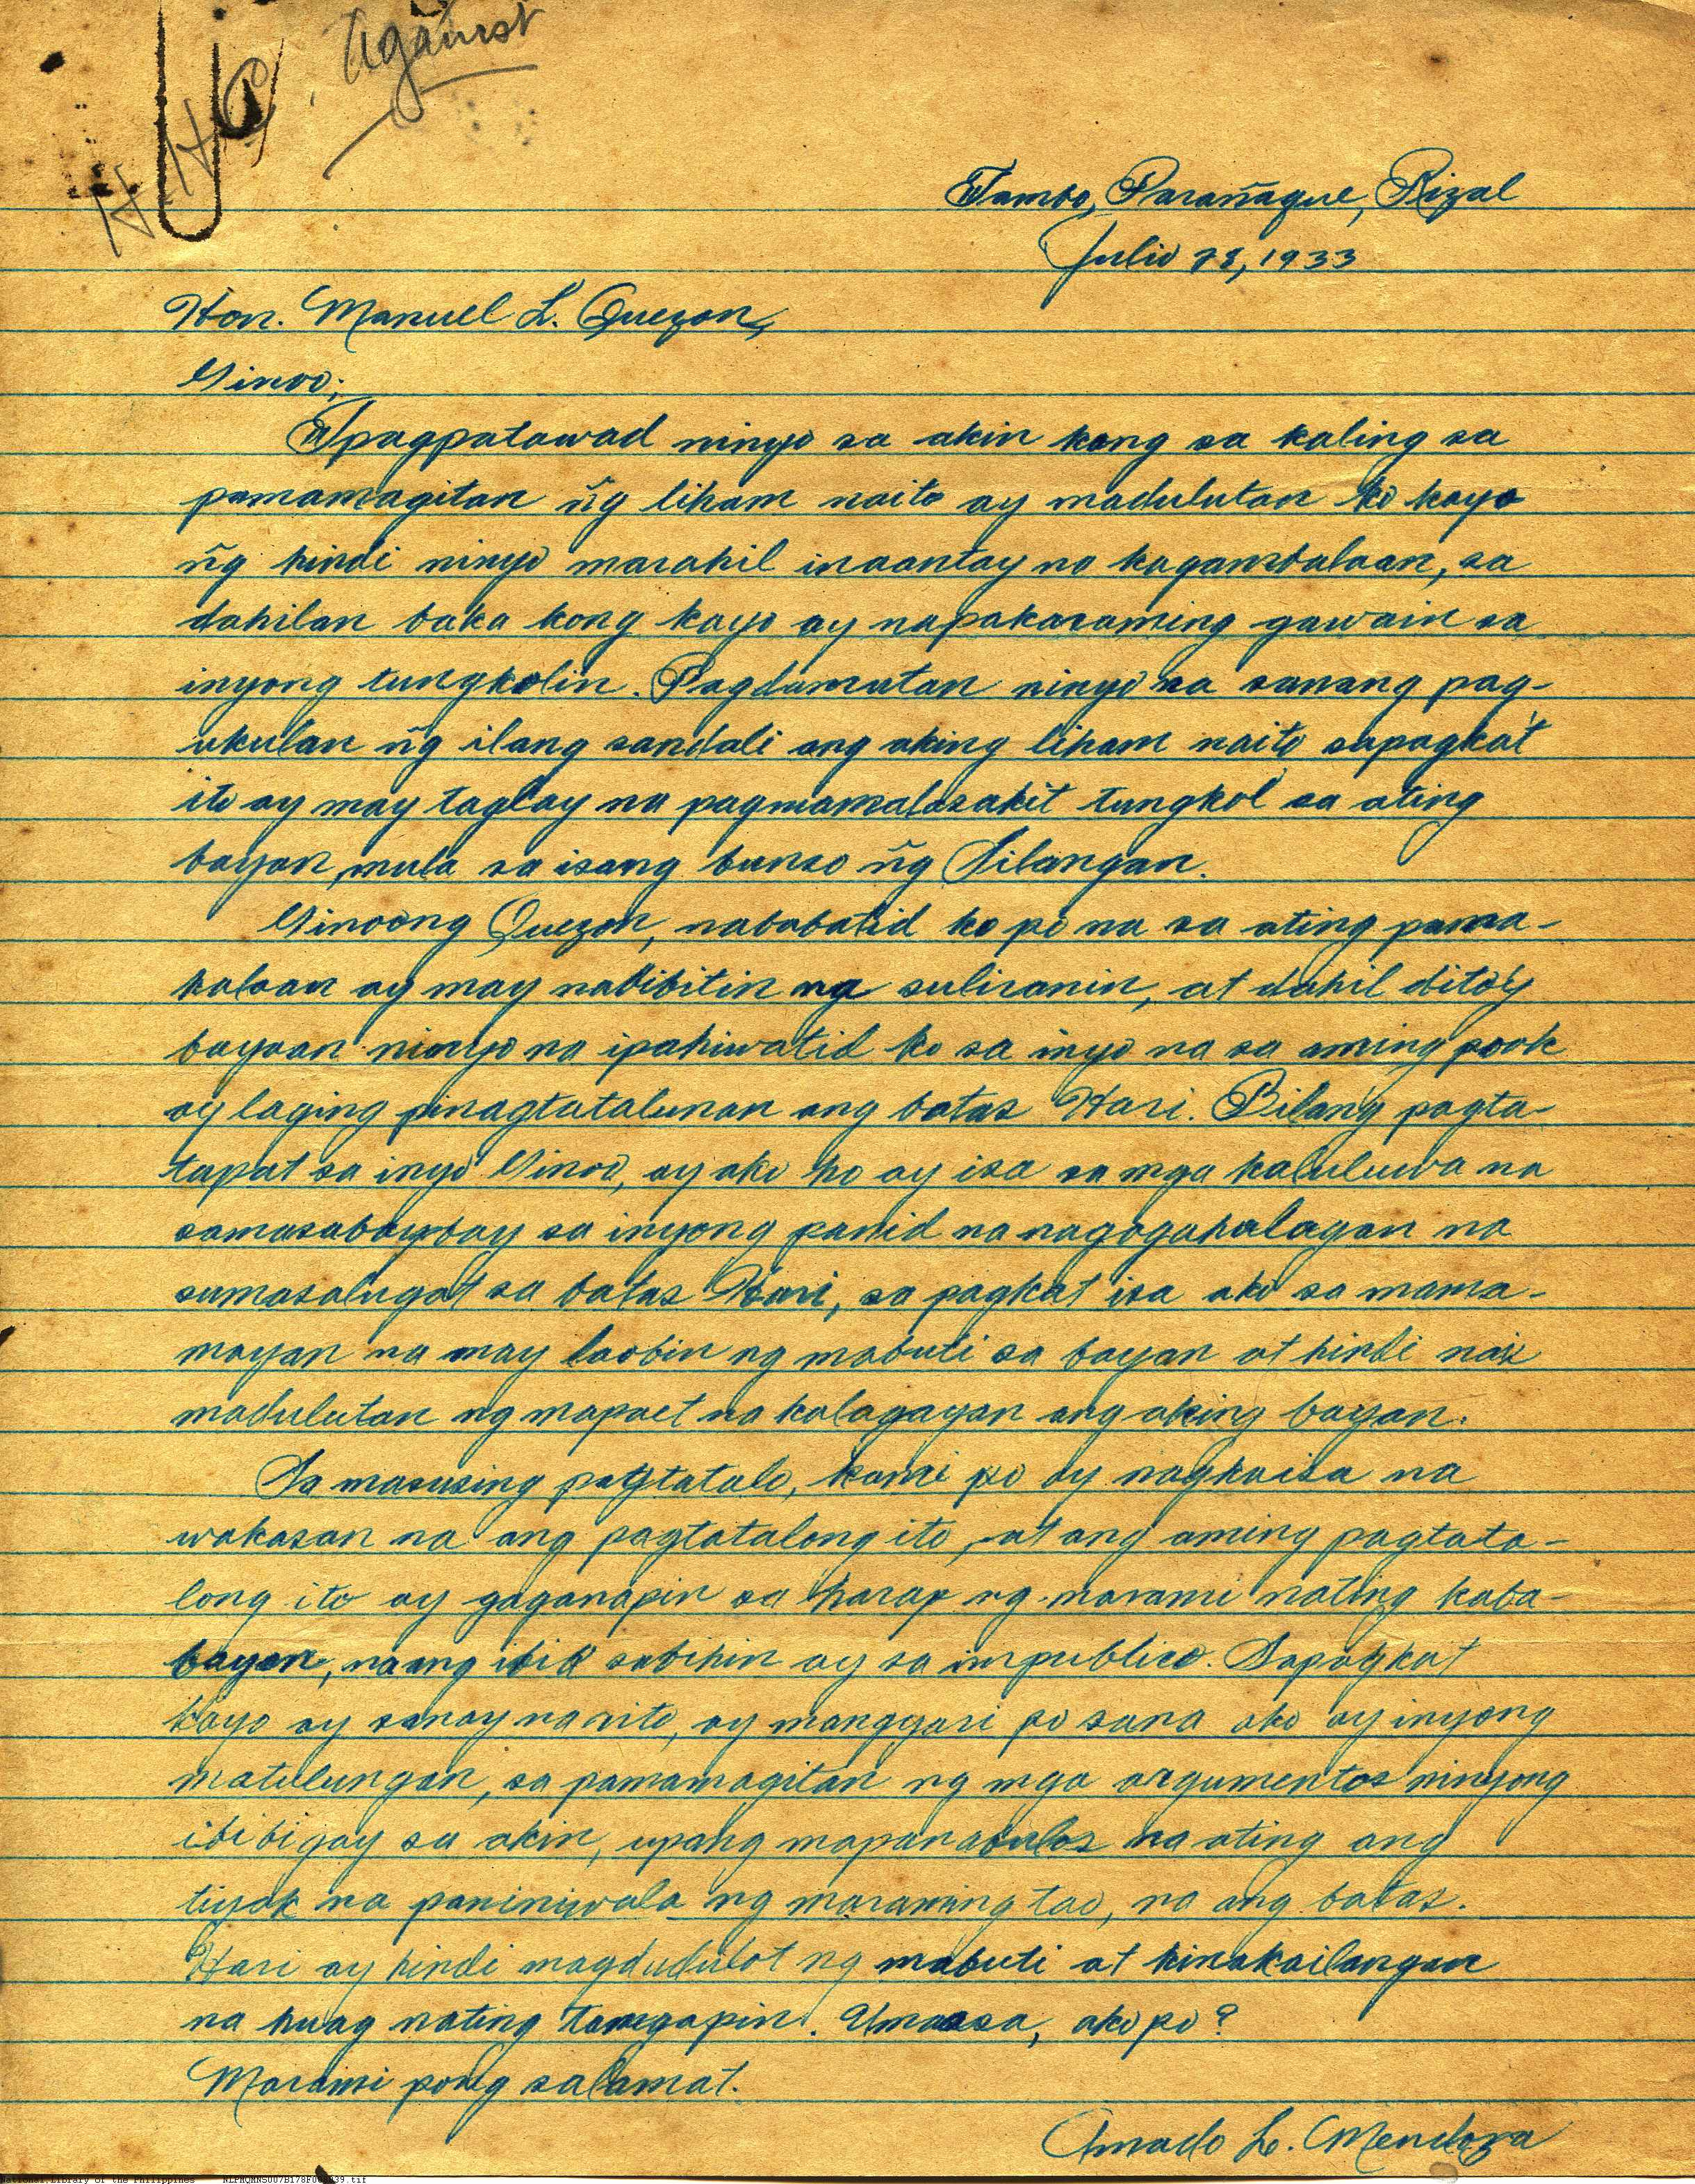 H.H.C. Against
Tambo, Parañaque, Rizal
Julio 28, 1933
Hon. Manuel L. Quezon,
Ginoo;
Ipagpatawad ninyo sa akin kong sa kaling sa
pamamagitan ñg liham naito ay madulutan ko kayo
ñg hindi ninyo marahil inaantay na kagambalaan, sa
dahilan baka kong kayo ay napakaraming gawain sa
inyong tungkolin. Pagdamutan ninyo na sanang pag-
ukulan ñg ilang sandali ang aking liham naito sapagka't
ito ay may taglay na pagmamalasakit tungkol sa ating
bayan, mula sa isang bunso ñg Silangan.
Ginoong Quezon, nababatid ko po na sa ating pama-
halaan ay may nabibitin na suliranin, at dahil dito'y
bayaan ninyo na ipahiwatid ko sa inyo na sa aming pook
ay laging pinagtatalunan ang batas Hari. Bilang pagta-
tapat sa inyo Ginoo, ay ako ho ay isa sa mga kaluluwa na
sumasabaybay sa inyong panid na nagagahalagan na
sumasalugat sa batas Hari, sa pagkat isa ako sa mama-
mayan na may loobin ng mabuti sa bayan at hindi nais
madulutan ng mapaet na kalagayan ang aking bayan.
Sa masusing pagtatalo, kami po ay nagkaisa na
wakasan na ang pagtatalong ito, at ang aming pagtata-
long ito ay gaganapin sa harap ng marami nating kaba-
bayan, na ang ibik sabihin ay sa inpublico. Sapagkat
kayo ay sanay na rito, ay mangyari po sana ako ay inyong
matulungan, sa pamamagitan ng mga argumentos ninyong
ibibigay sa akin, upang mapanabulos na ating ang
tiyak na paniniwala ng maraming tao, na ang batas.
Hari ay hindi magdudulot ng mabuti at kinakailangan
na huag nating tanggapin. Umaasa, ako po?
Marami pong salamat.
Amado L. Mendoza
National Library of the Philippines